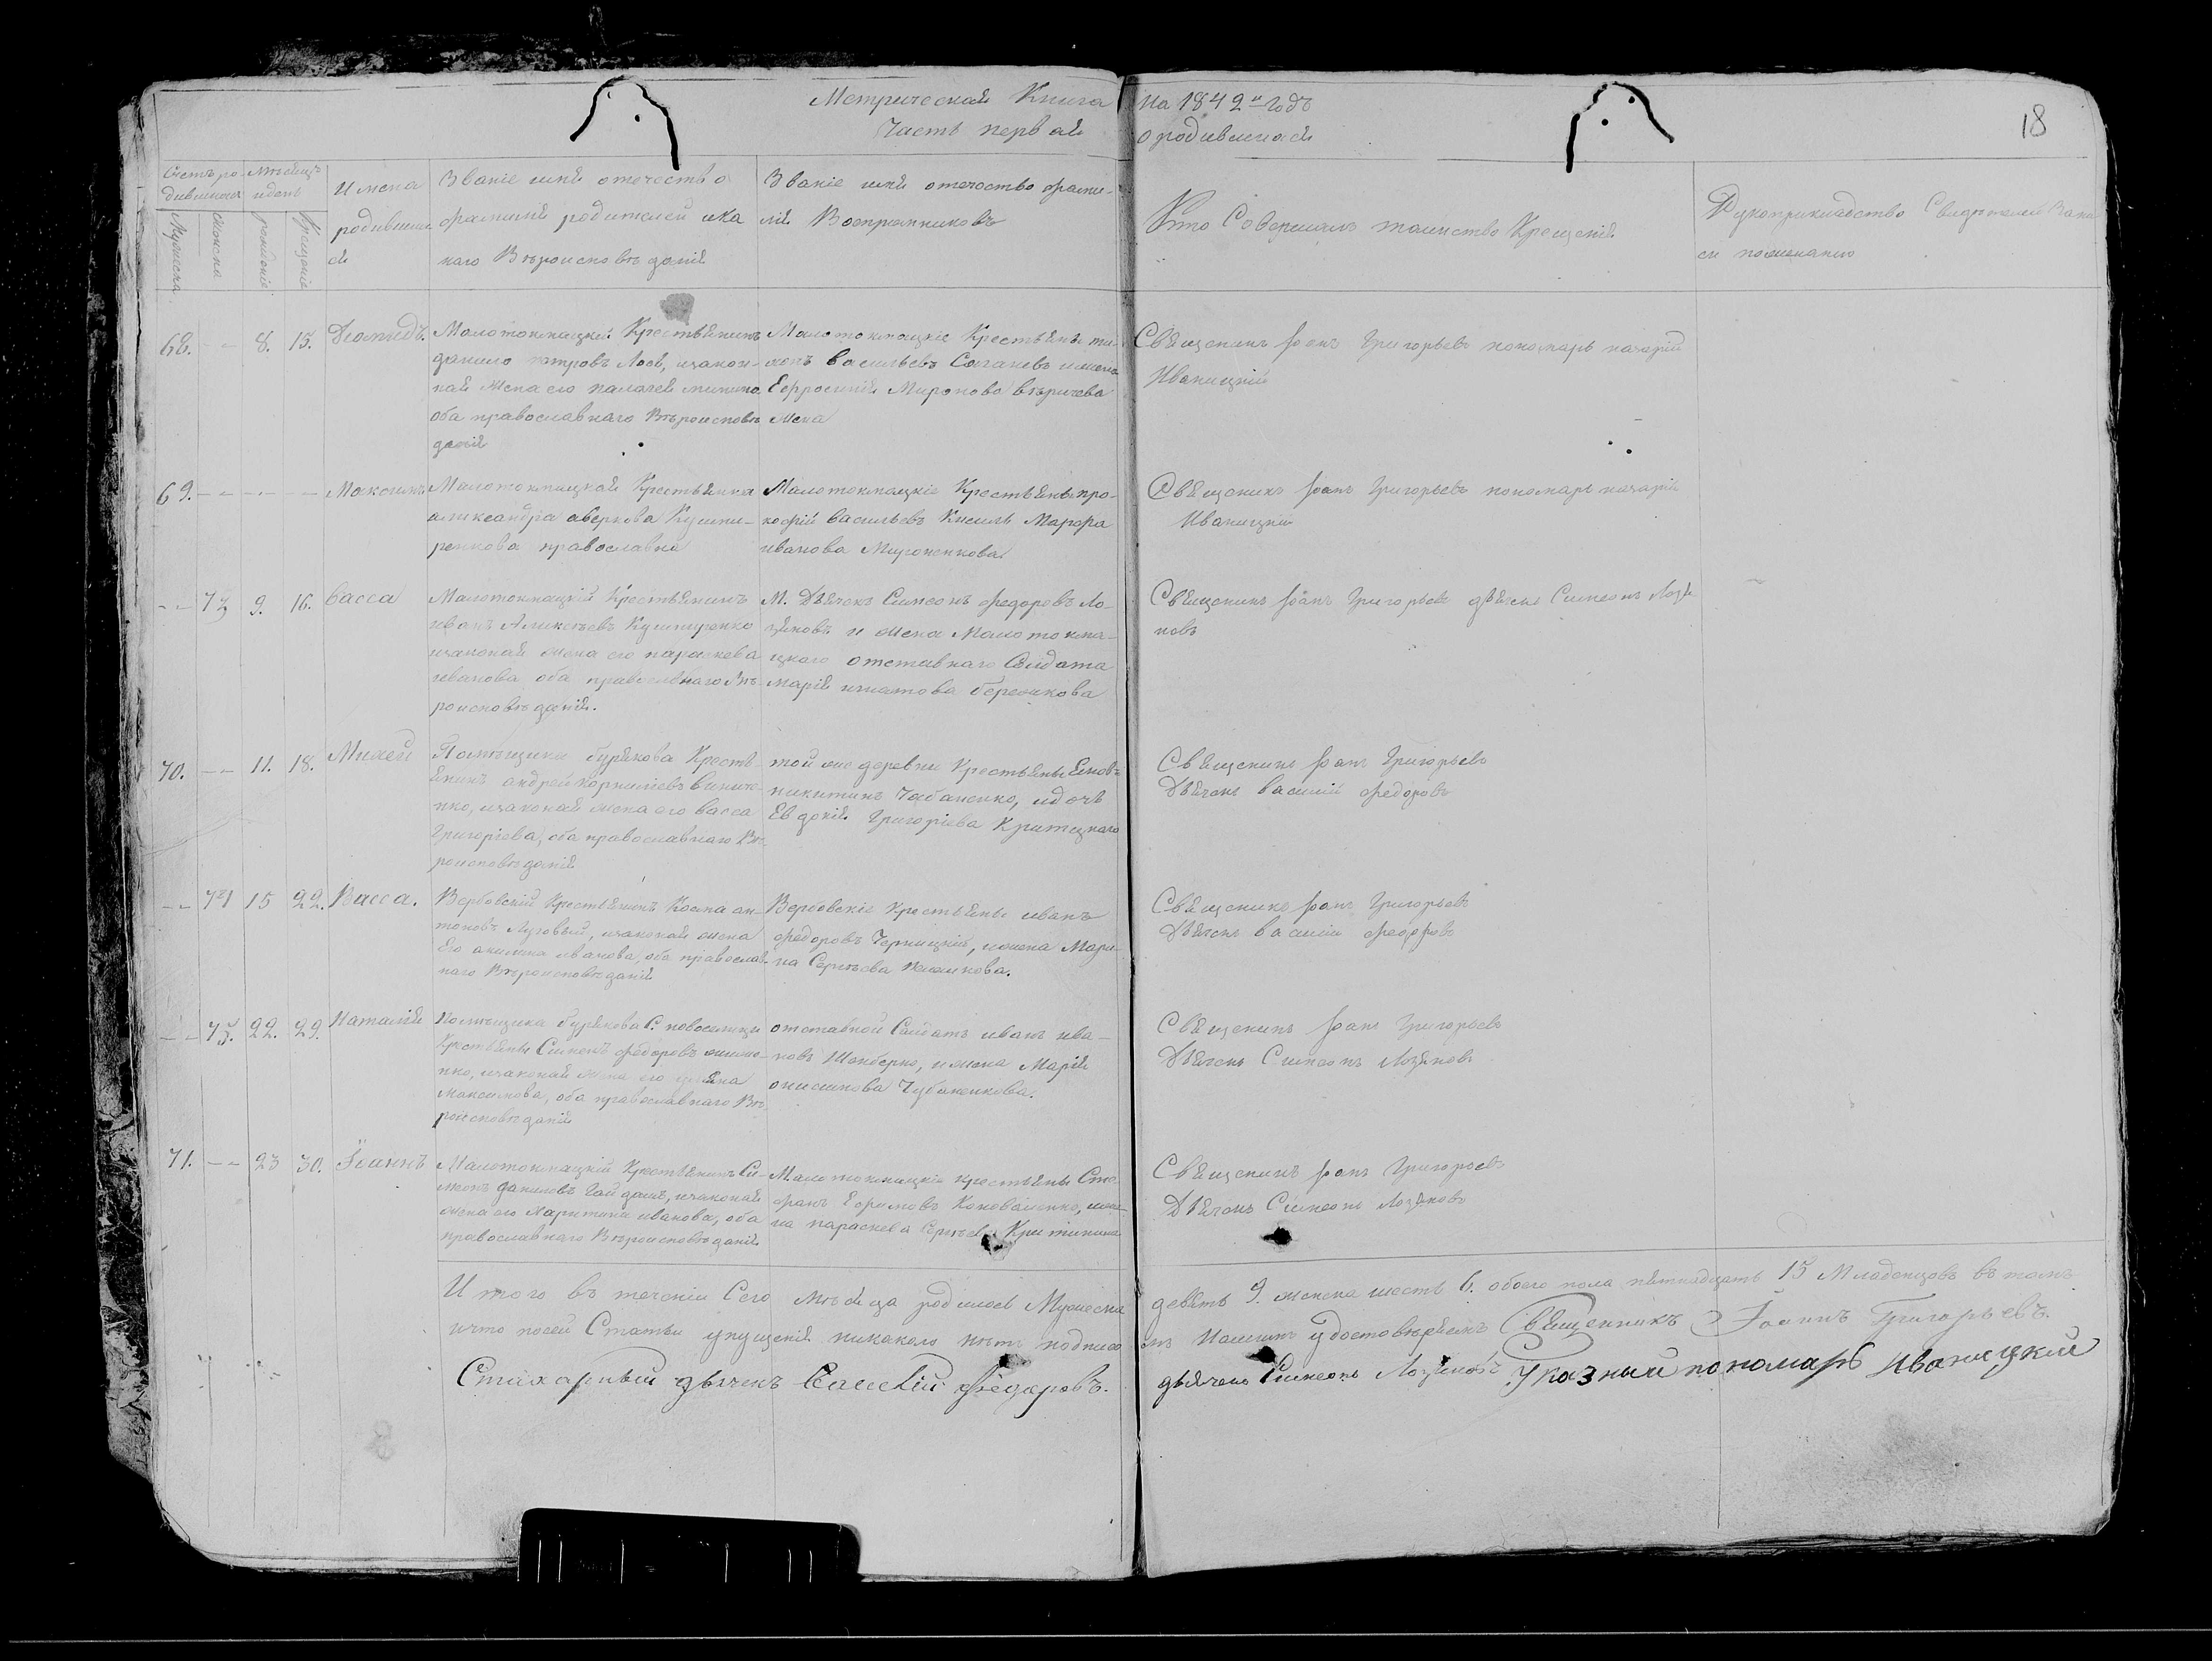 Метрическая Книга на 1842й годъ
Часть первая о родившихся
18
Счетъ ро-
дившихся
Мѣсяцъ
и день
Мужеска
Женска
рожденіе
Крещеніе
Имена
родивших
ся
Званіе имя отечество
фамилія родителей и ка
каго Вѣроисповѣданія
Званіе имя отечество фами-
лія Воспріемниковъ
Кто Совершалъ таинство Крещенія
Рукоприкладство Свидѣтелей Запи
си по желанію
68. - - 8. 15. Діомидъ.
Малотокмацкій Крестьянинъ
данило петровъ Лось, изакон-
ная жена его
оба православнаго Вѣроисповѣ
данія
Малотокмацкіе Крестьяне ти-
васильевъ
Ефросинія Миронова
жена
Священикъ Іоанъ Григорьевъ пономарь назарій
Иваницкій
69. - - - - Максимъ
Малотокмацкая Крестьянка
александра аверкова Кушни-
ренкова православная
Малотокмацкіе Крестьяны про-
кофій васильевъ Кисиль Марфа
иванова Мироненкова.
Священикъ Іоанъ Григорьевъ пономарь назарій
Иваницкій
- - 73 9. 16. васса
Малотокмацкій Крестьянинъ
иванъ Алексѣевъ Кушниренко
изаконая жена его параскева
иванова оба православнаго Вѣ-
роисповѣданія.
М. Дьячекъ Симеонъ федоровъ Ло-
зяновъ и жена Малотокма-
цкаго отставнаго Солдата
марія игнатова
Священикъ Іоанъ Григорьевъ дьячекъ Симеонъ Лозя
новъ
70. - - 11. 18. Михей
Помѣщика бурякова Кресть-
янинъ андрей корниліевъ
нко, изаконая жена его васса
Григоріева, оба православнаго Вѣ-
роисповѣданія
той же деревни Крестьяны
никитинъ Чабаненко, и дочь
Евдокія Григоріева
Священикъ Іоанъ Григорьевъ
Дьячекъ василій федоровъ
- - 74 15 22. Васса.
Вербовскій Крестьянинъ Косма ан-
тоновъ Луговый, изаконая жена
Его акилина иванова, оба православ-
наго Вѣроисповѣданія
Вербовскіе Крестьяны иванъ
федоровъ Черницкій, и жена Мари-
на Сергѣева
Священикъ Іоанъ Григорьевъ
Дьячекъ василій федоровъ
- - 75. 22. 29. Наталія
Помѣщика бурякова С. новоселицы
Крестьяны Симеонъ федоровъ
нко, изаконая жена его
Максимова, оба православнаго Вѣ-
роисповѣданія
отставной Солдатъ иванъ ива-
новъ и жена Марія
онисимова Чубаненкова.
Священикъ Іоанъ Григорьевъ
Дьячекъ Симеонъ Лозяновъ
71. - - 23 30. Іоаннъ
Малотокмацкій Крестьянинъ Си-
меонъ даниловъ Гайдашъ, изаконая
жена его Харитина иванова, оба
православнаго Вѣроисповѣданія
Малотокмацкіе крестьяны Сте-
фанъ Ефимовъ Коноваленко, и же-
на параскева Сергѣева
Священикъ Іоанъ Григорьевъ
Дьячекъ Симеонъ Лозяновъ
Итого въ теченіи Сего мѣсяца родилось Мужеска девять 9. женска шесть 6. обоего пола пятнадцать 15 Младенцовъ въ томъ
ичто посей Статьи упущенія никакого нѣтъ подписомъ Нашимъ удостовѣряемъ Священникъ Іоаннъ Григорьевъ.
дьячекъ Василій Федоровъ. дьячекъ Симеонъ Лозяновъ Указный пономарь Иваницкий